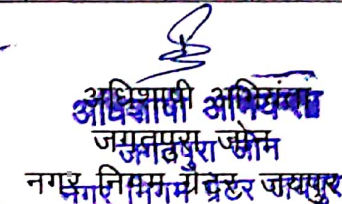 अधिशाषी अभियंता
जगतपुरा जोन
नगर निगम ग्रेटर जयपुर